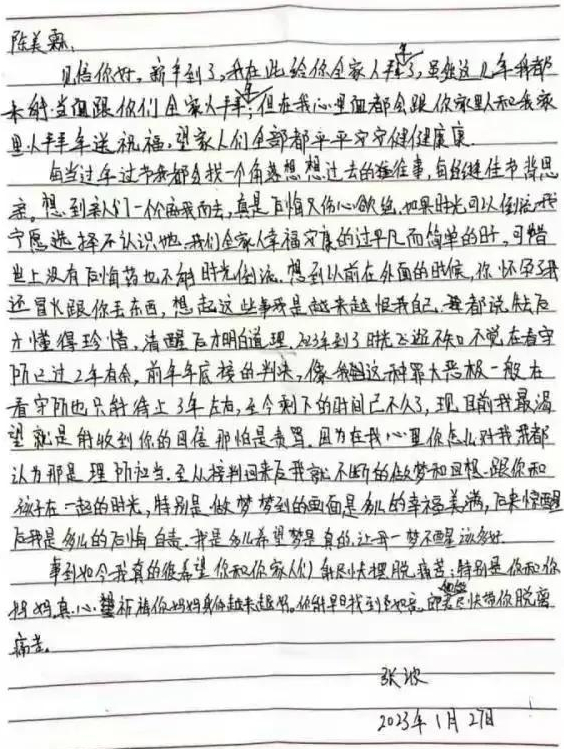 陈美霖:
见信你好。新年到了,我在此给你全家人拜年了,虽然这几年我都
未能当面跟你们全家人拜年,但在我心里面都会跟你家里人和我家
里人拜年送祝福,望家人们全部都平平安安健健康康。
每当过年过节我都会找一个角落想想过去的往事,每逢佳节背思
亲。想到亲人们一个个离我而去,真是后悔又伤心欲绝,如果时光可以倒流我
宁愿选择不认识她,我们全家人幸福安康的过平凡而简单的日,可惜
世上没有后悔药也不能时光倒流。想到以前在外面的时候,你怀孕了我
还冒火跟你丢东西,想起这些事我是越来越恨我自己,都说失去后
才懂得珍惜,清醒后才明白道理。2023年到了时光飞逝不知不觉在看守
所已过2年有余,前年年底接的判决,像我这种罪大恶极一般在
看守所也只能待上3年左右,至今剩下的时间已不久了,现目前我最渴
望就是能收到你的回信那怕是责骂,因为在我心里你怎么对我我都
认为那是理所应当。至从接判回来后我就不断的做梦和回想跟你和
孩子在一起的时光,特别是做梦梦到的画面是多么的幸福美满,后来惊醒
后我是多么的后悔自责,我是多么希望梦是真的,让我一梦不醒该多好
事到如今我真的很希望你和你家人们能尽快摆脱痛苦;特别是你和你
妈妈,真心祈祷你妈妈身体越来越好。你能早日找到,尽快带你脱离
痛苦。
张波
2023年1月27日